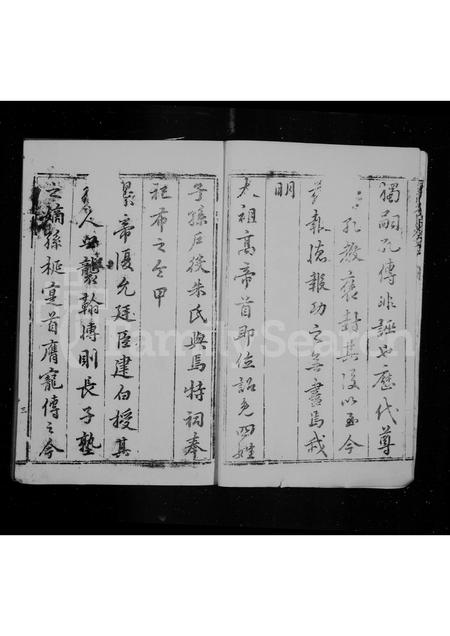 獨嗣孔傳非誣也歷代尊
孔教褒封其後以至今
報德報功之無盡焉哉
明
太祖高帝首即位詔免四姓
子孫戶役朱氏與焉特祠奉
祀布之令甲
景帝優允廷臣建白授其
人與襲翰博則長子塾
之嫡孫梴寔首膺寵傳之今
三
FamilySearch